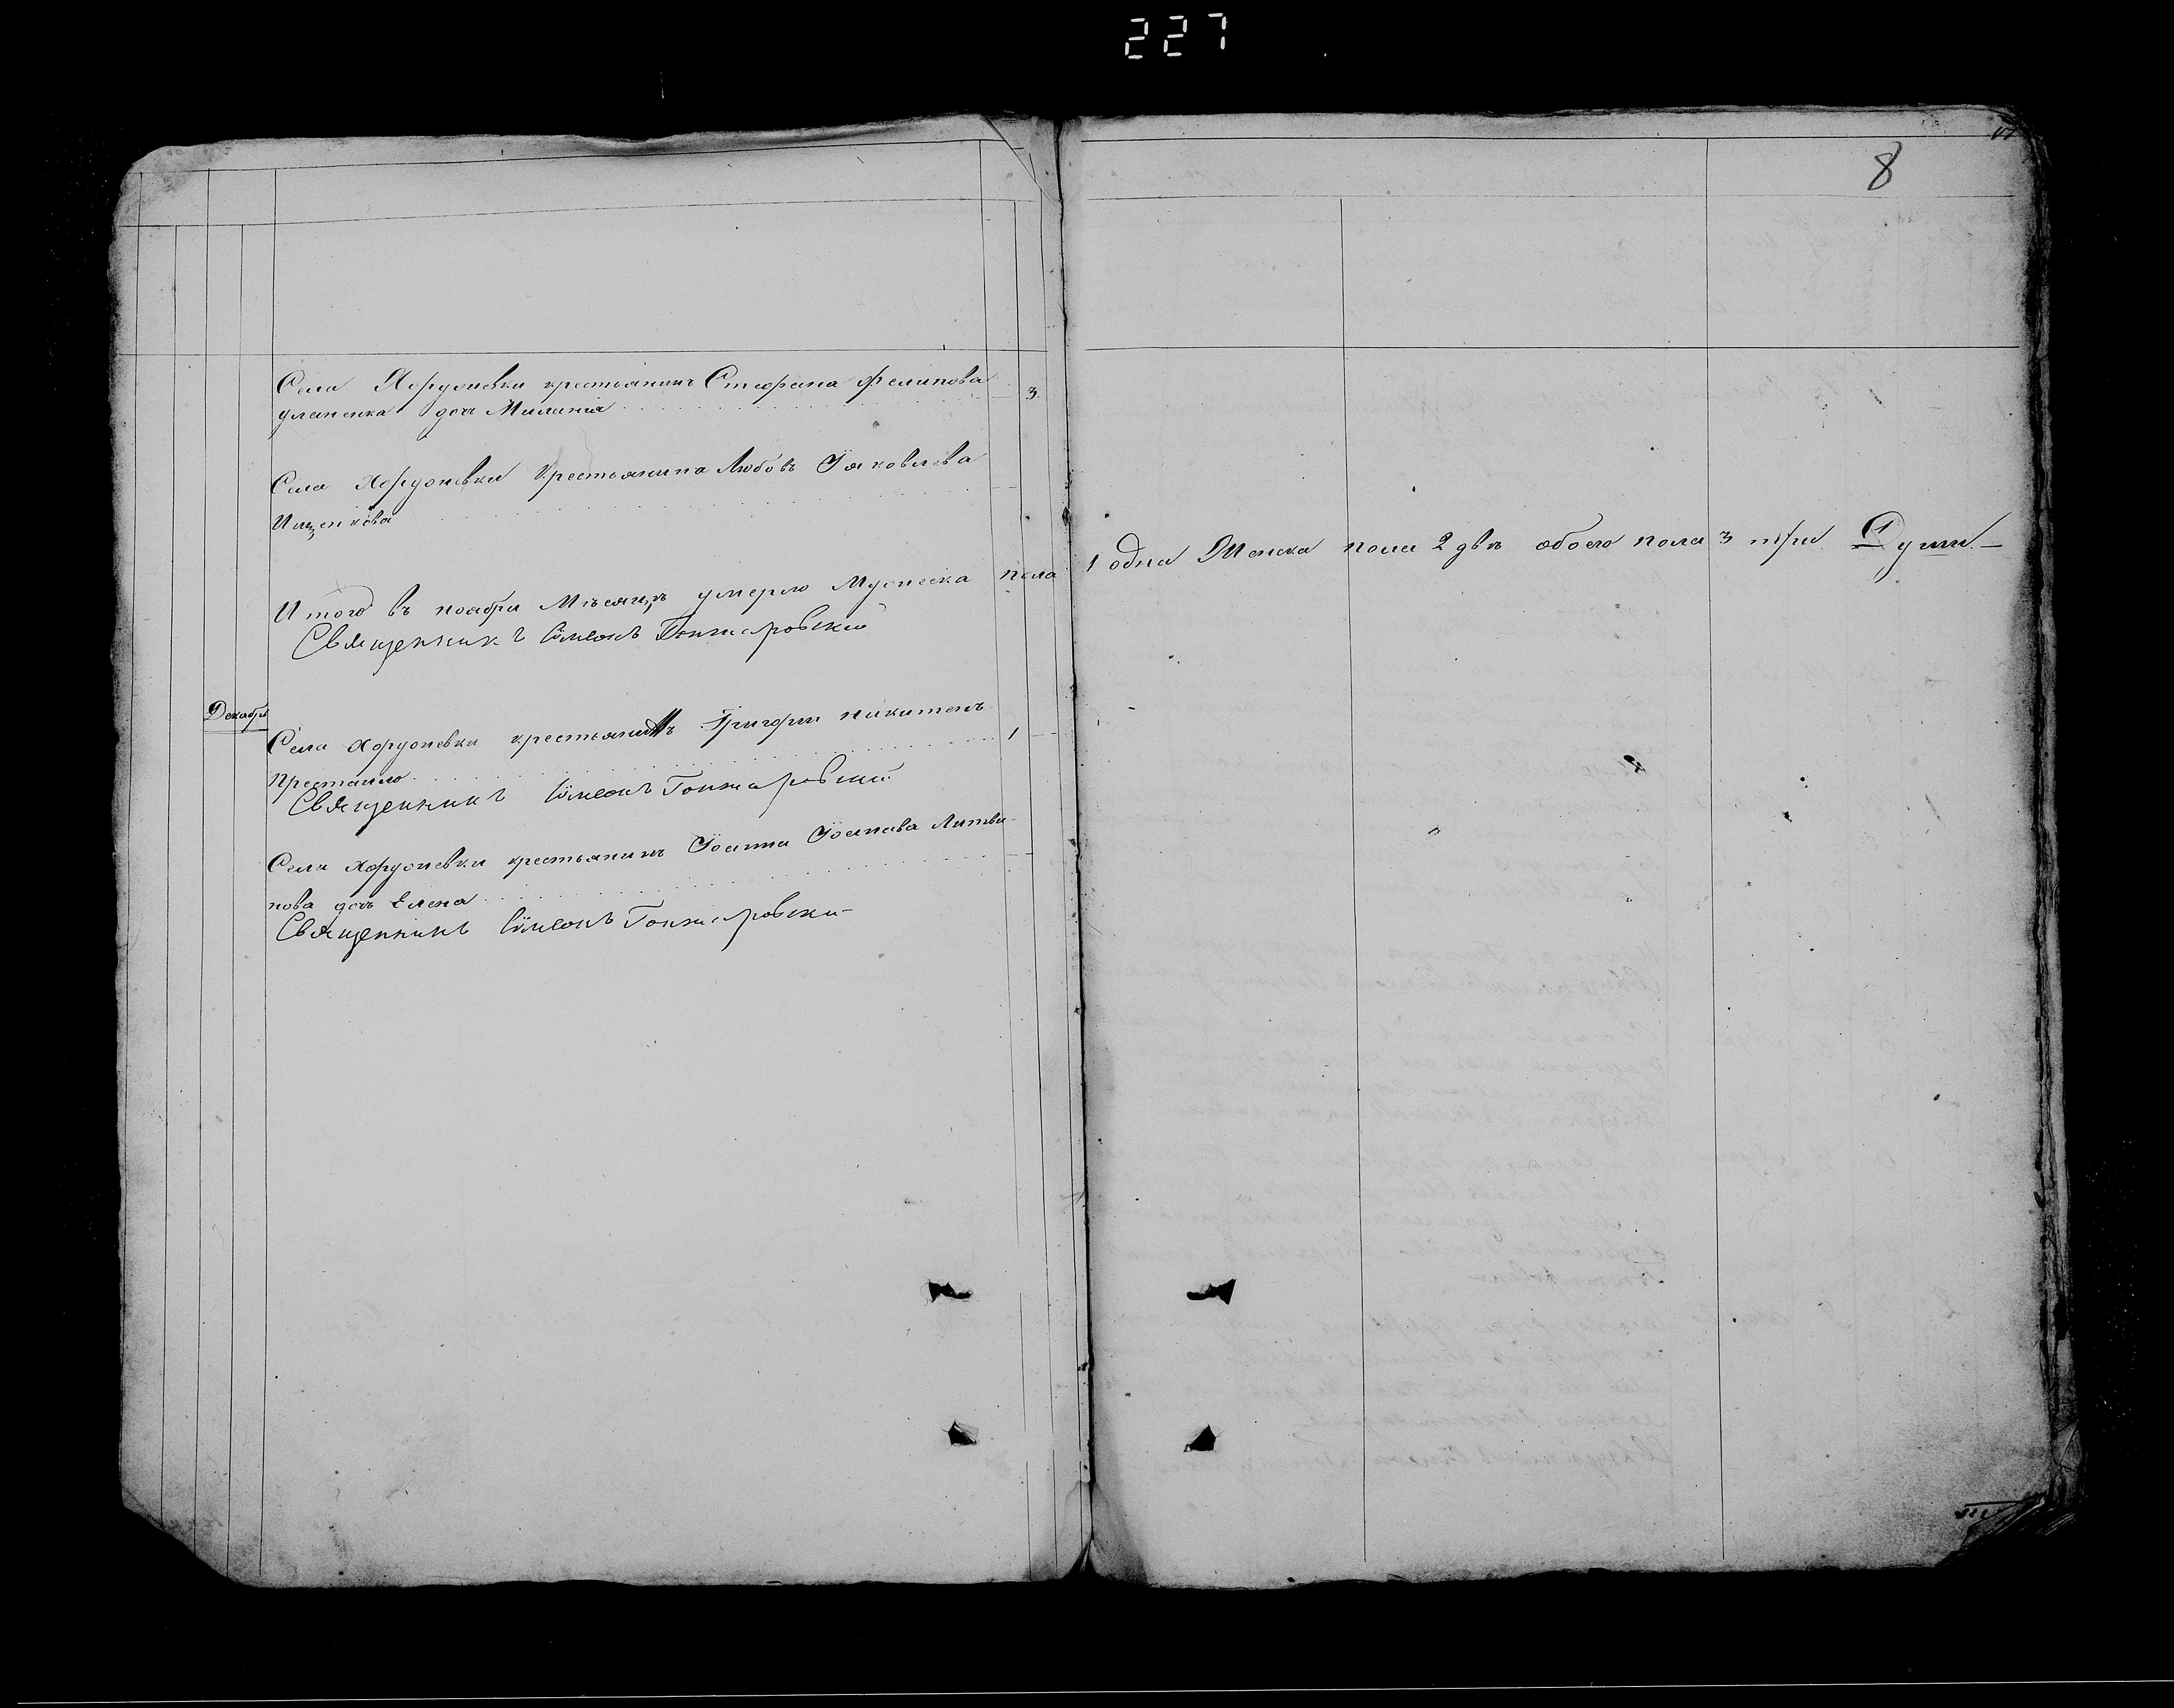 227
8
Села Хорунжевки крестьянинъ Стефана Филипова 3
дочь Миланія
Села Хорунжевки Крестьянина Любовь Іяковлева
Ищенкова
Итого въ ноябрѣ Мѣсяцѣ умерло Мужеска пола 1 одна Женска пола 2 двѣ обоего пола 3 три Души
Священникъ Сѵмеонъ Гонжаровскій
Декабрь
Села Хорунжевки крестьянинъ Григорій Никитенъ 1
Священникъ Сѵмеонъ Гонжаровскій
Села Хорунжевки крестьянинъ Іоанна Іоанова Литви-
нова дочь Елена
Священникъ Сѵмеонъ Гонжаровскій